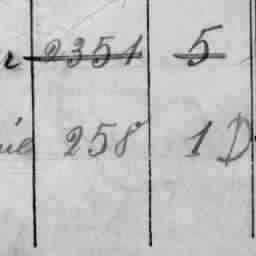 2351 5
258 1 D